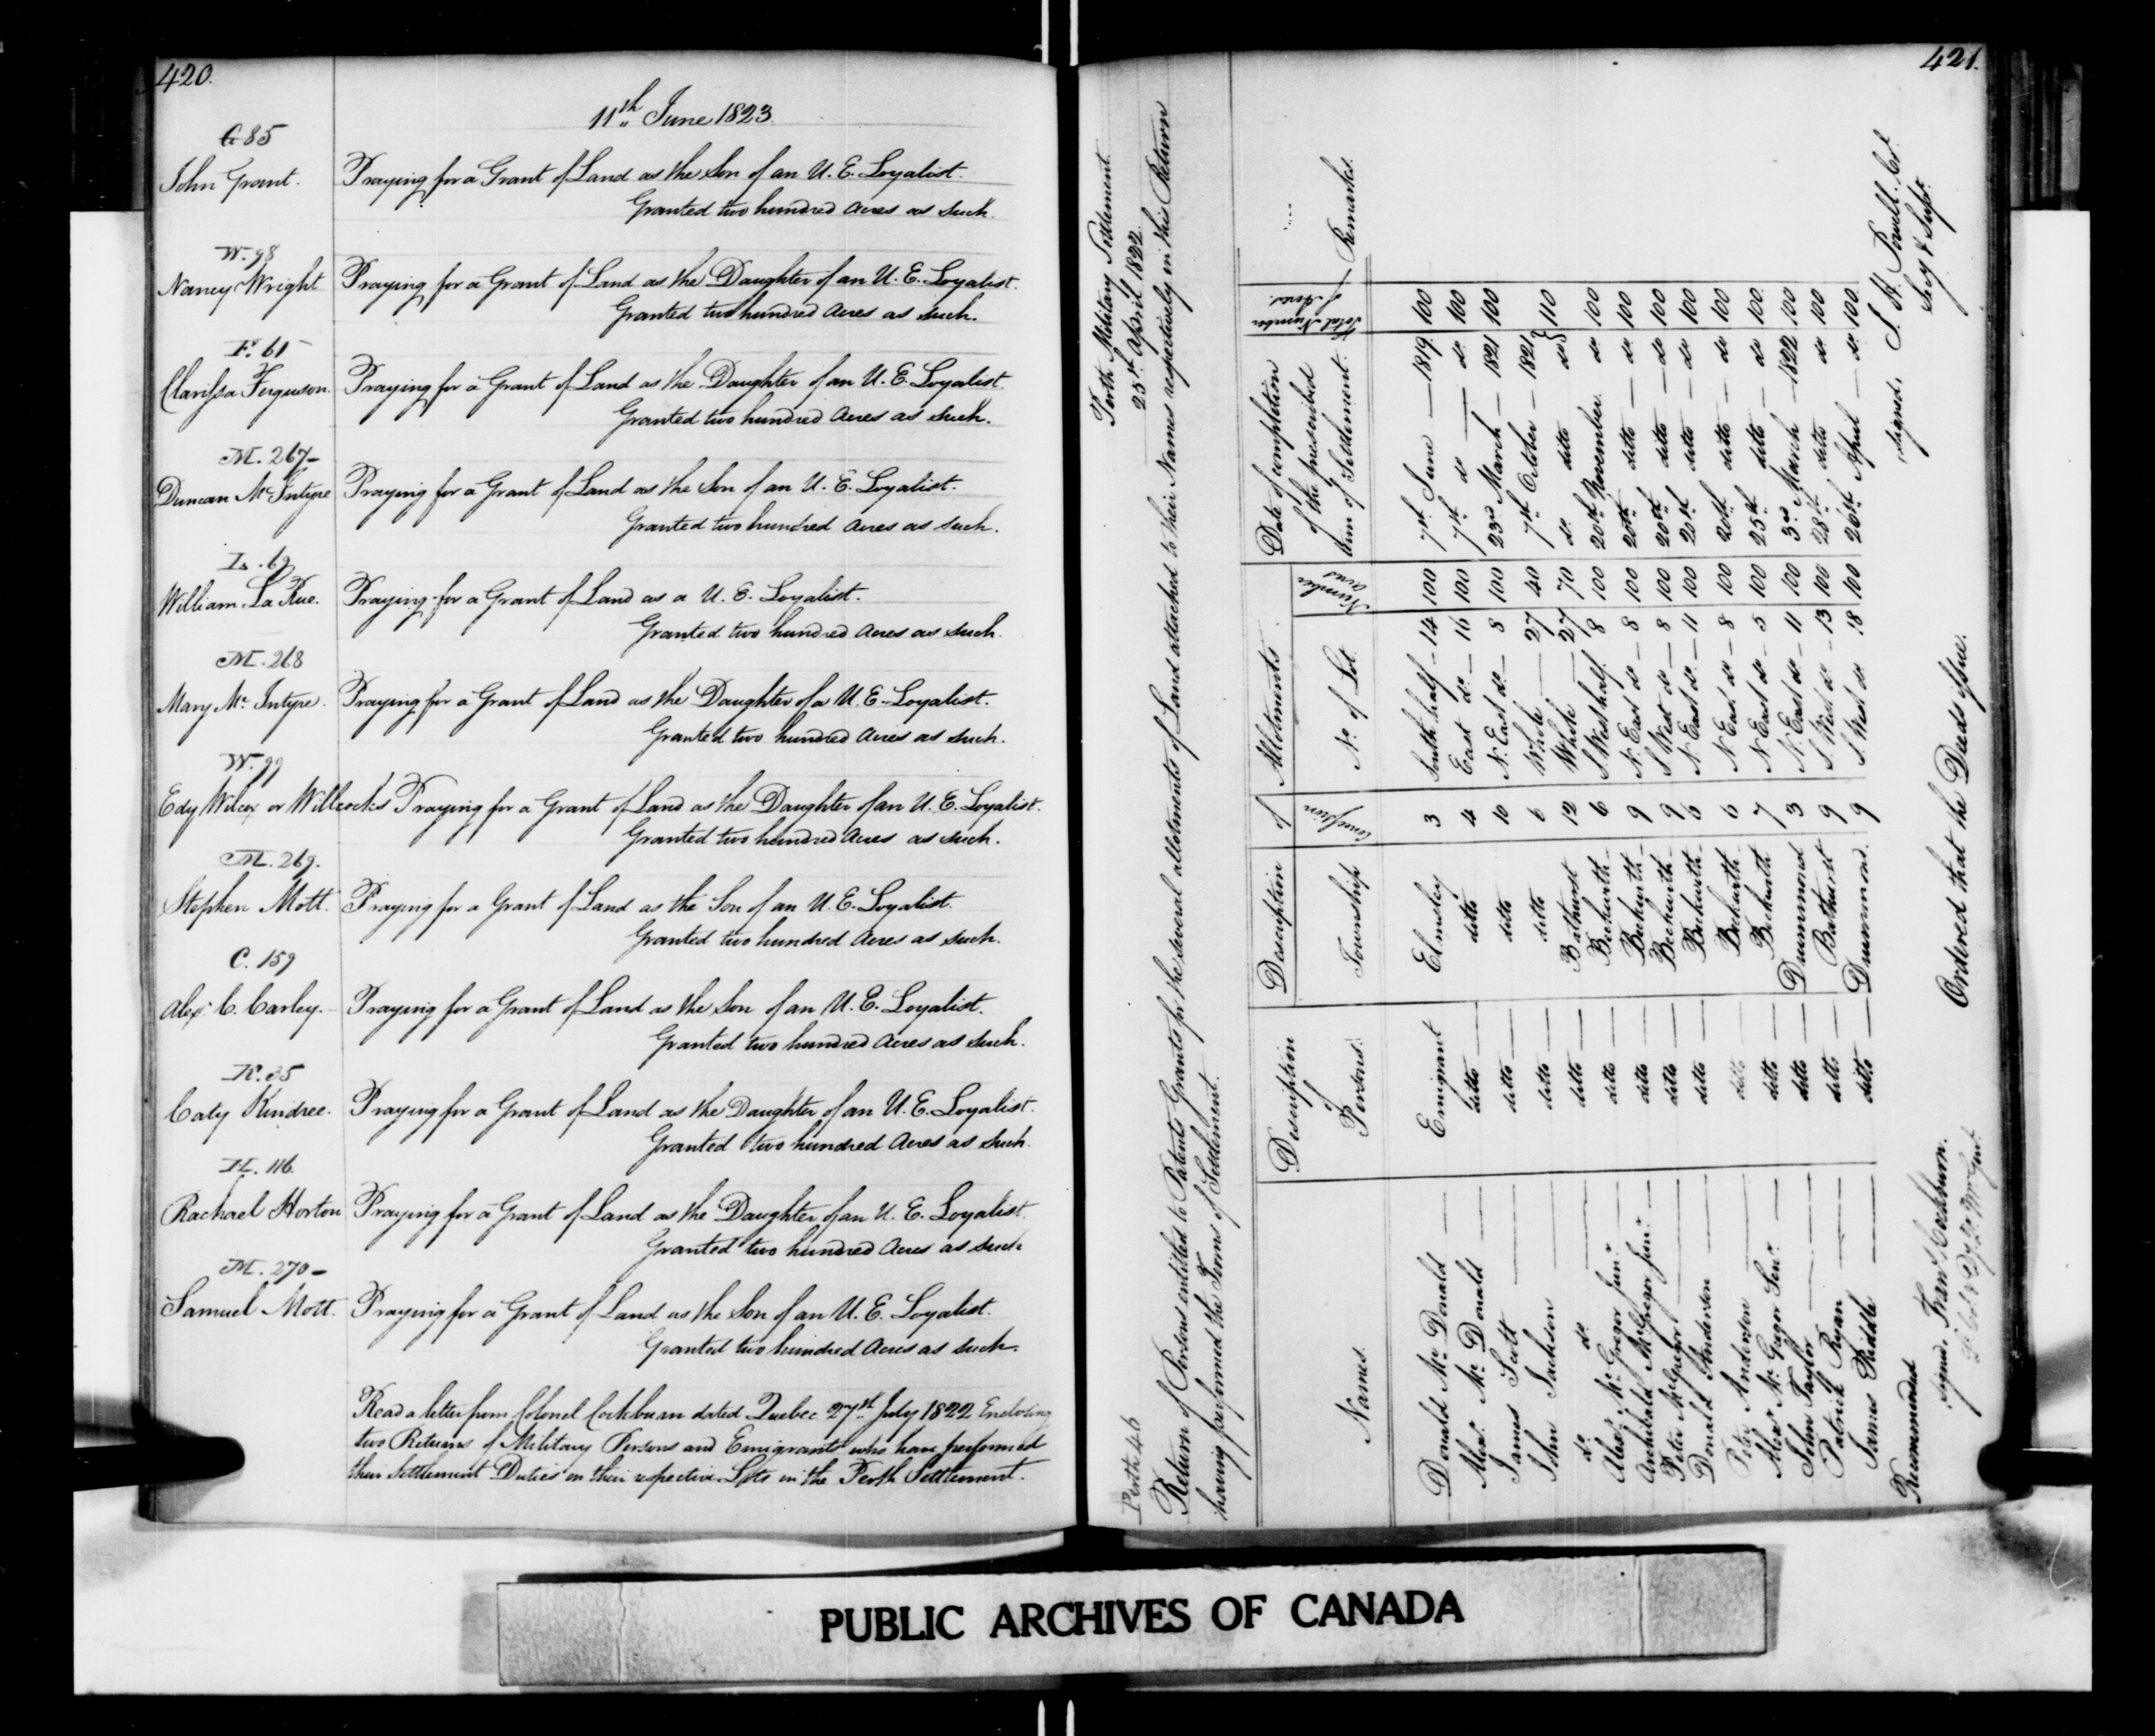 420.
11th June 1823
G 85
John Grant. Praying for a Grant of Land as the Son of an U. E. Loyalist.
Granted two hundred Acres as such.
W. 98
Nancy Wright Praying for a Grant of Land as the Daughter of an U. E. Loyalist.
Granted two hundred Acres as such.
F. 61
Clarissa Ferguson. Praying for a Grant of Land as the Daughter of an U. E. Loyalist
Granted two hundred Acres as such.
M. 267
Duncan McIntyre Praying for a Grant of Land as the Son of an U. E. Loyalist.
Granted two hundred Acres as such.
L. 69
William La Rue. Praying for a Grant of Land as a U. E. Loyalist.
Granted two hundred Acres as such.
M. 268
Mary Mc Intyre. Praying for a Grant of Land as the Daughter of a U. E. Loyalist.
Granted two hundred Acres as such.
W. 99
Edy Wilcox or Willcocks Praying for a Grant of Land as the Daughter of an U. E. Loyalist.
Granted two hundred Acres as such.
M. 269.
Stephen Mott. Praying for a Grant of Land as the Son of an U. E. Loyalist.
Granted two hundred Acres as such.
C. 159
Alexr C. Carley. Praying for a Grant of Land as the Son of an U. E. Loyalist.
Granted two hundred Acres as such.
K. 35
Caty Kindree. Praying for a Grant of Land as the Daughter of an U. E. Loyalist.
Granted two hundred Acres as such.
H. 116.
Rachael Horton Praying for a Grant of Land as the Daughter of an U. E. Loyalist.
Granted two hundred Acres as such
M. 270
Samuel Mott. Praying for a Grant of Land as the Son of an U. E. Loyalist.
Granted two hundred Acres as such.
Read a letter from Colonel Cockburn dated Quebec 27th July 1822 Enclosing
two Returns of Military Persons and Emigrants who have performed
their Settlement Duties on their respective Lots in the Perth Settlement.
421.
Perth Military Settlement.
25th April 1822.
Perth 46
Return of Persons entitled to Patents Grants for the several allotments of Land attached to their Names respectively in this Return
having performed the Terms of Settlement.
Names. Description of Persons. Description of Allotments Date of completion of the prescribed Term of Settlement. Total Number of Acres. Remarks.
Township Concession No of Lot. Number acres
Donald Mc Donald Emigrant Elmsley 3 South half 14 100 7th June 1819 100
Alexr Mc Donald ditto ditto 4 East do 16 100 7th do do 100
James Scott ditto ditto 10 N. East do 8 100 23rd March 1821 100
John Jackson ditto ditto 6 Whole 27 40 7th October 1821
do do ditto Bathurst 12 Whole 27 70 do ditto do } 110
Alexr McGregor Junr ditto Beckwith 6 S West half 8 100 20th November do 100
Archibald McGregor Junr ditto Beckwith 9 N. East do 8 100 20th ditto do 100
Peter McGregor ditto Beckwith 9 S. West do 8 100 20th ditto do 100
Donald Anderson ditto Beckwith 5 N. East do 11 100 20th ditto do 100
Peter Anderson ditto Beckwith 6 N East do 8 100 20th ditto do 100
Alexr Mc Gregor Senr ditto Beckwith 7 N. East do 5 100 25th ditto do 100
John Taylor ditto Drummond 3 N. East do 11 100 3rd March 1822 100
Patrick Ryan ditto Bathurst 9 S. West do 13 100 28th ditto do 100
James Riddle ditto Drummond. 9 S. West do 18 100 26th April do 100
Recommended
signed, Frans Cockburn.
signed, S. H. Powell. Col.
Secy & Supt.
Ordered that the Deeds issue.
PUBLIC ARCHIVES OF CANADA